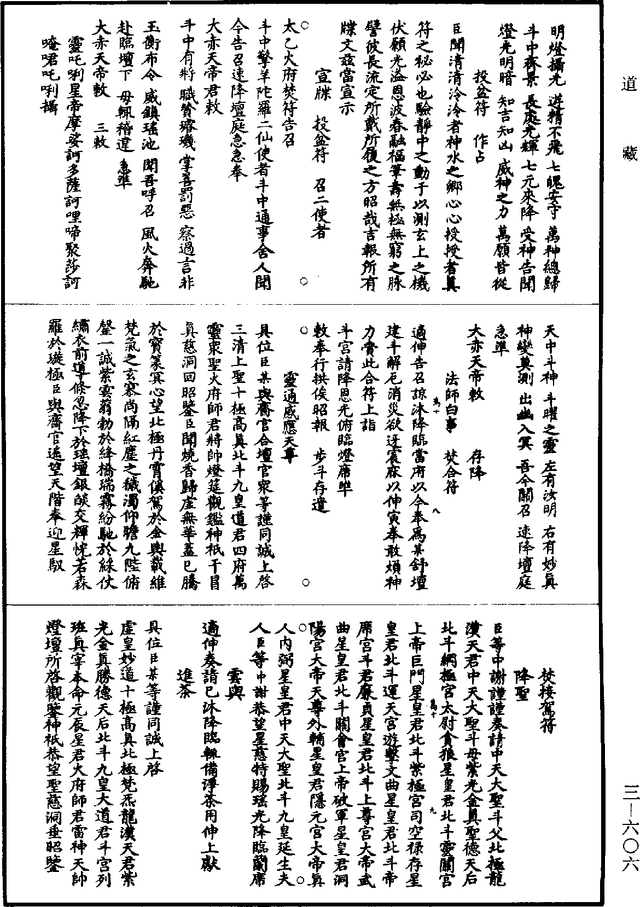 道藏
明燈攝光遊精不飛七魄安守萬神總歸
斗中齊景長處光輝七元來降受神告聞
燈光明暗知吉知凶威神之力萬願皆從
投盆符作占
臣聞清清泠泠者神水之鄉心心授授者真
符之秘必也驗靜中之動于以測玄上之機
伏願光溢恩波春融福筆壽無極無窮之脉
譬彼長流定所戴所履之方昭哉吉報所有
牒文兹當宣示
宣牒投盆符召二使者
太乙火府焚符告召
斗中擎羊陀羅二仙使者斗中通事舍人聞
今告召速降壇庭急急奉
大赤天帝君敕
斗中有將職贊璿璣掌喜罰惡察過言非
玉衡布令威鎮瑤池聞吾呼召風火奔馳
赴臨壇下毋輒稽違急準
大赤天帝敕三敕
靈吒唎星帝摩娑訶多薩訶哩啼聚莎訶
唵唕吒唎攝
天中斗神斗曜之靈左有汝明右有妙真
神變莫測出幽入冥吾今關召速降壇庭
急準
大赤天帝敕存降
法師白事焚合符
適伸告召諒沐降臨當府以今奉為某舒壇
建斗解厄消災欲迓寰庥以伸寅奉敢煩神
力賫此合符上詣
斗宮請降恩光俯臨燈席準
敕奉行拱俟昭報步斗存道
靈通感應天尊
具位臣某與齋官合壇官衆等謹同誠上啓
三清上聖十極高真北斗九皇道君四府萬
靈衆聖火府師君將帥燈筵觀鑑神祇干冒
真慈洞回昭鑒臣聞燒香歸虛無華蓋已騰
於寶篆冥心望北極丹霄僾駕於金輿載維
梵氣之玄寥尚隔紅塵之穢濁仰瞻九陛俯
罄一誠紫雲蓊勃於絳橋瑞霧紛馳於綵仗
繡衣前導倏忽降下於瑤壇銀燄交輝恍若森
羅於璇極臣與齋官遙望天階奉迎星馭
焚接駕符
降聖
臣等中謝謹謹奏請中天大聖斗父北極龍
漢天君中天大聖斗母紫光金真聖德天后
北斗網極宮太尉貪狼星皇君北斗靈關宮
上帝巨門星皇君北斗紫極宮司空禄存星
皇君北斗運天宮遊擊文曲星皇君北斗帝
席宮斗君廉貞星皇君北斗上尊宮大帝武
曲星皇君北斗關會宮上帝破軍星皇君洞
陽宮大帝天尊外輔星皇君隱元宮大帝真
人内弼星皇君中天大聖北斗九皇延生夫
人臣等中謝恭望星慈特賜瑤光降臨蘭席
雲輿
適伸奏請已沐降臨輒備淨茶用伸上獻
進茶
具位臣某等謹同誠上啓
虛皇妙道十極高真北極梵炁龍漢天君紫
光金真勝德天后北斗九皇大道君斗宮列
班真宰本命元辰星君火府師君雷神天帥
燈壇所啓觀鑒神祇恭望聖慈洞垂昭鑒
三—六〇六